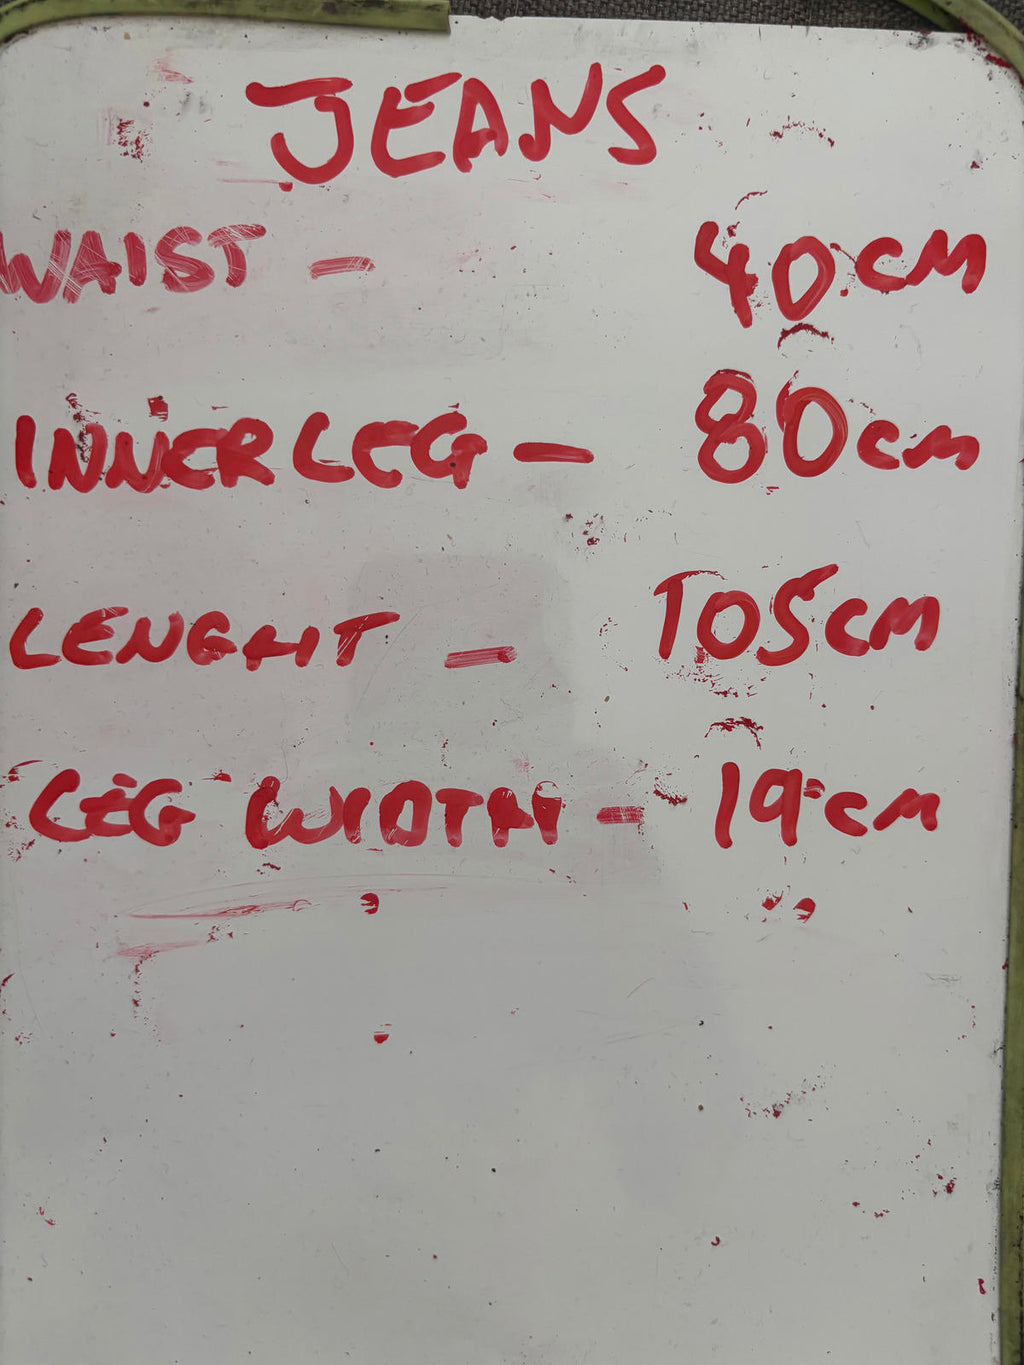 JEANS
WAIST - 40CM
INNER LEG - 80CM
LENGHT - 105CM
LEG WIDTH - 19CM